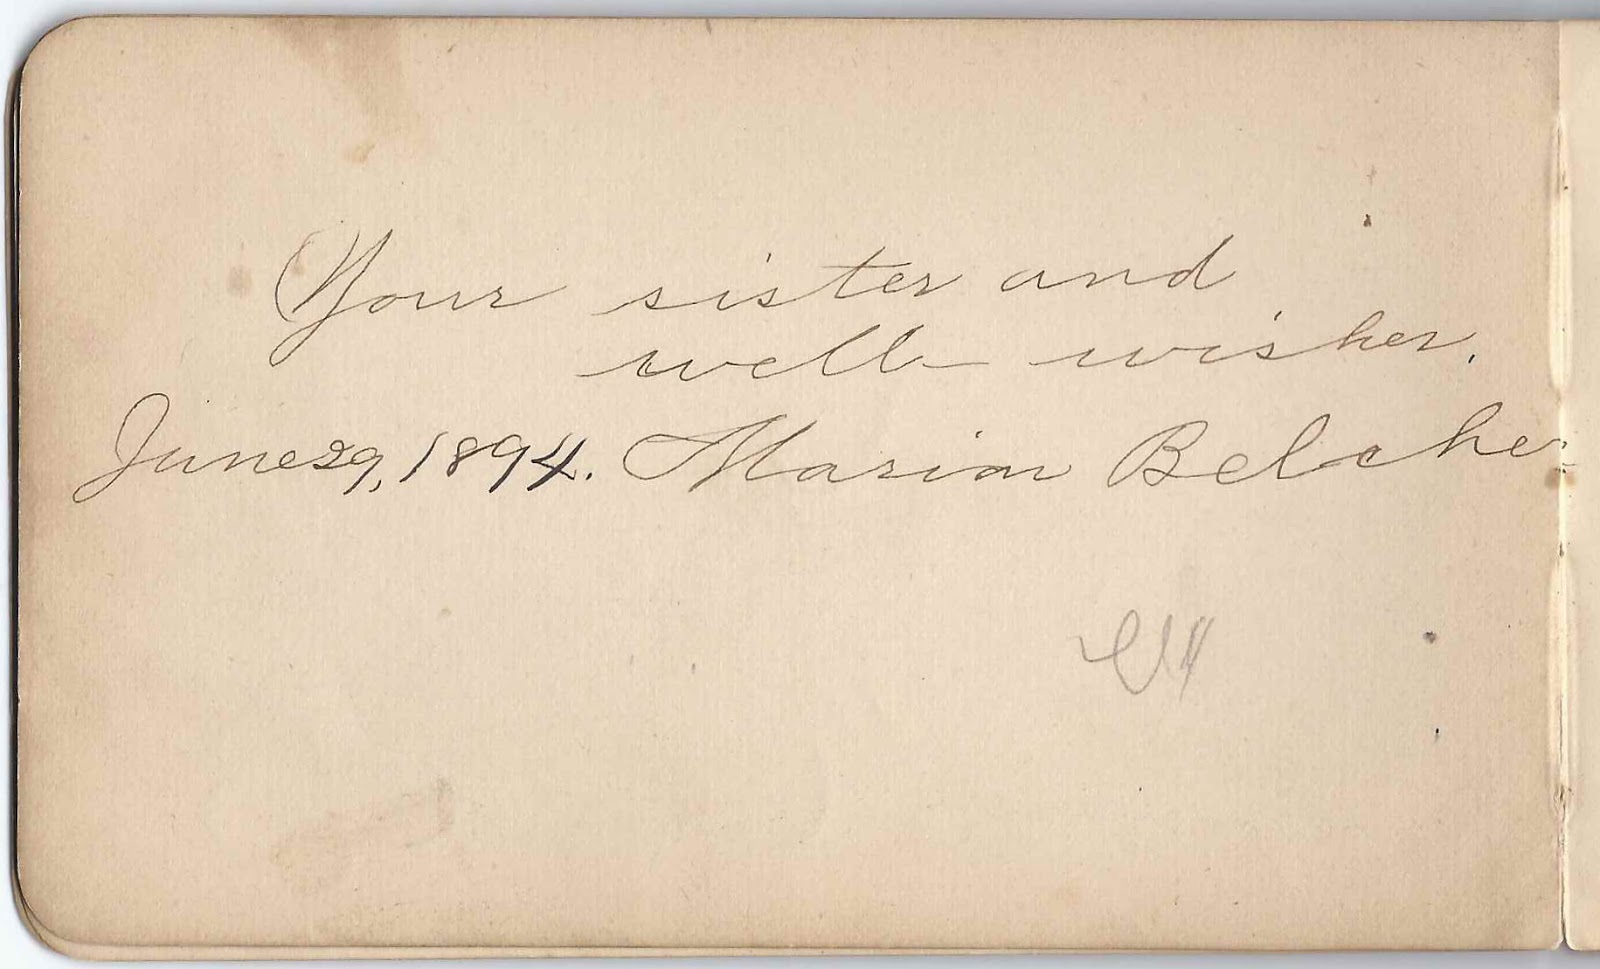 Your sister and
well-wisher.
June 29, 1894. Marion Belcher